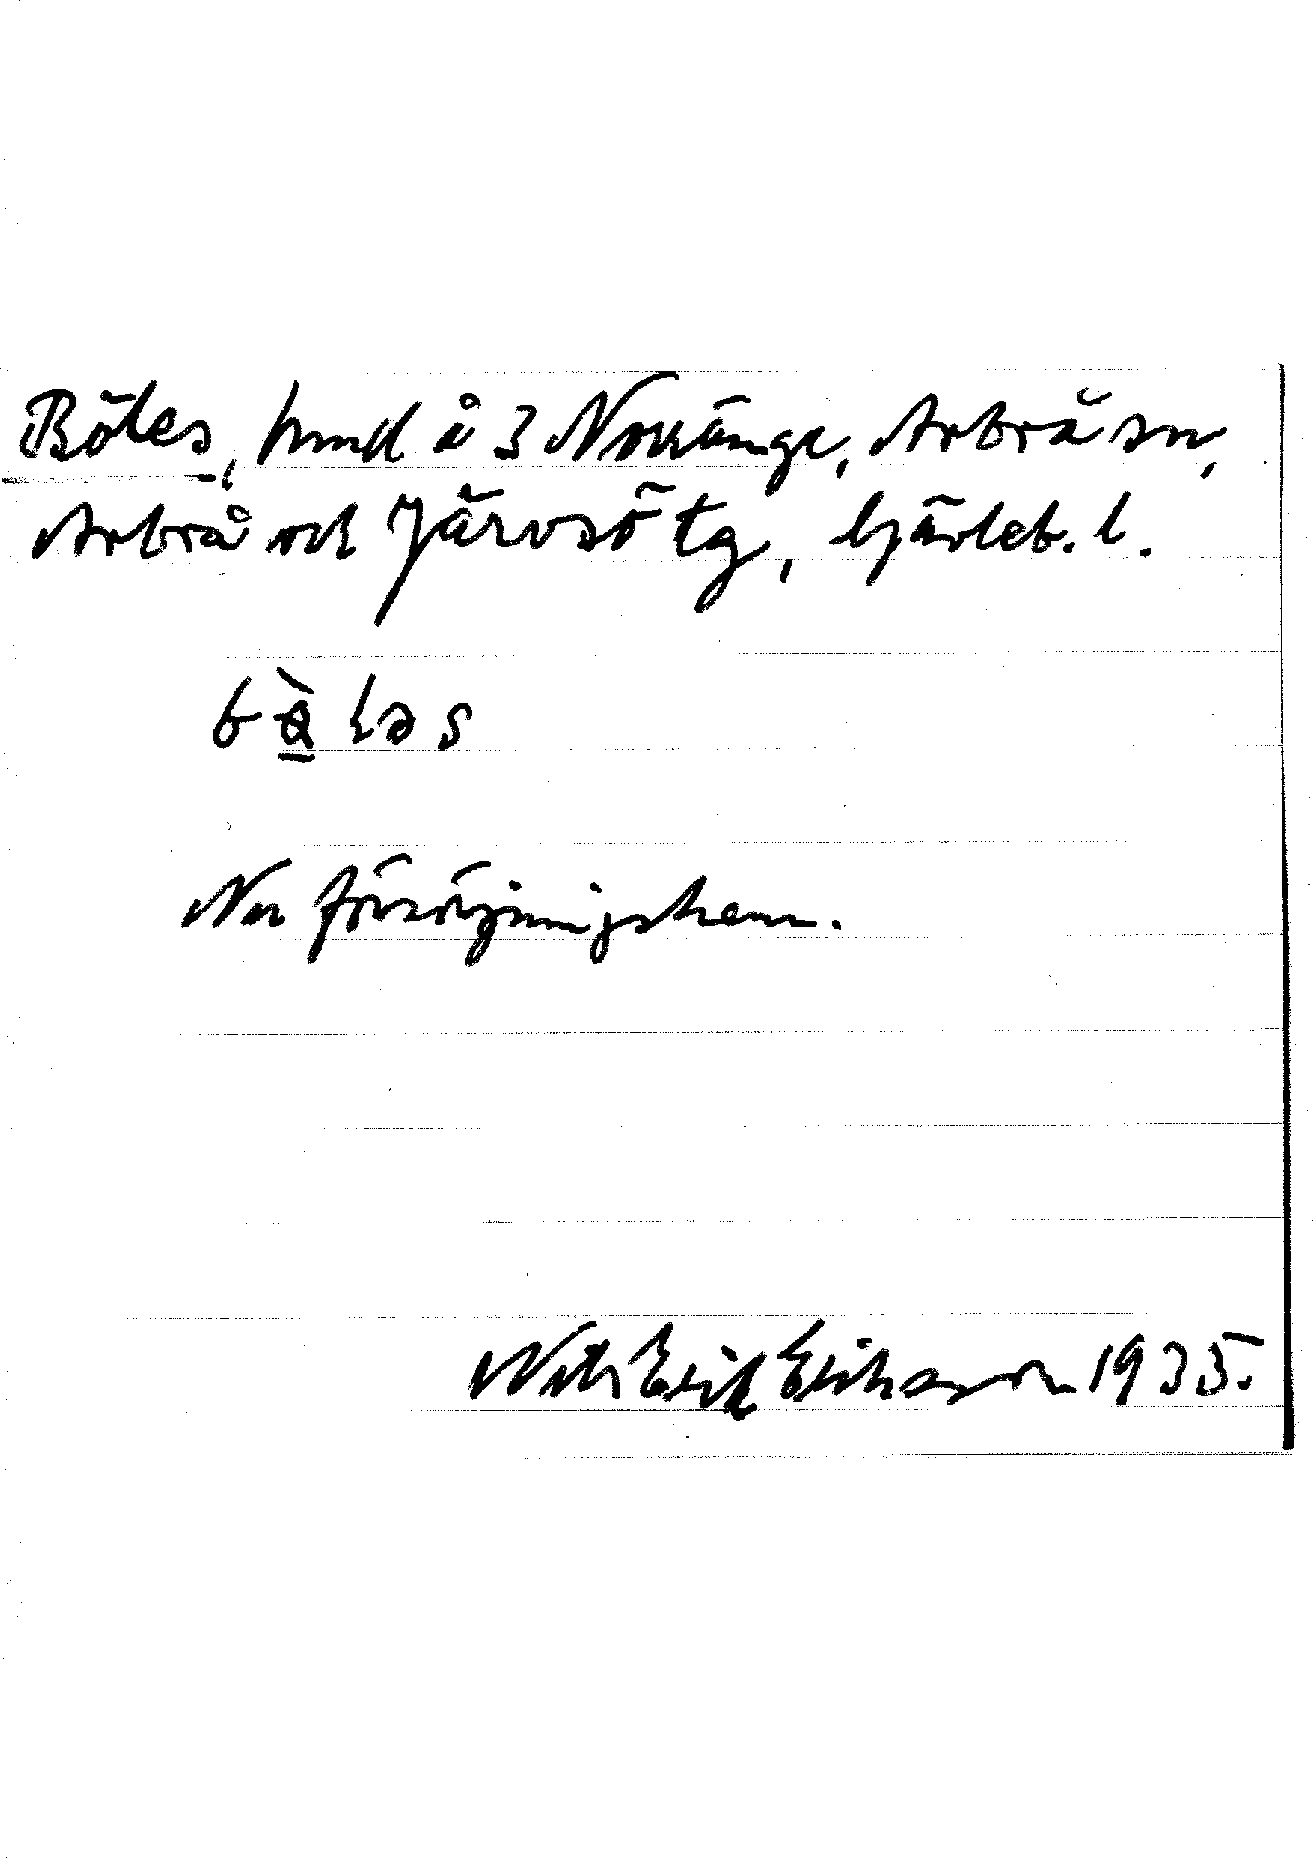 Böles, hmd å 3 Norränge, Arbrå sn,
Arbrå och Järvsö tg, Gävleb. l.
bö̀ləs
Nu försörjningshem.
Nils Erik Eriksson 1935.